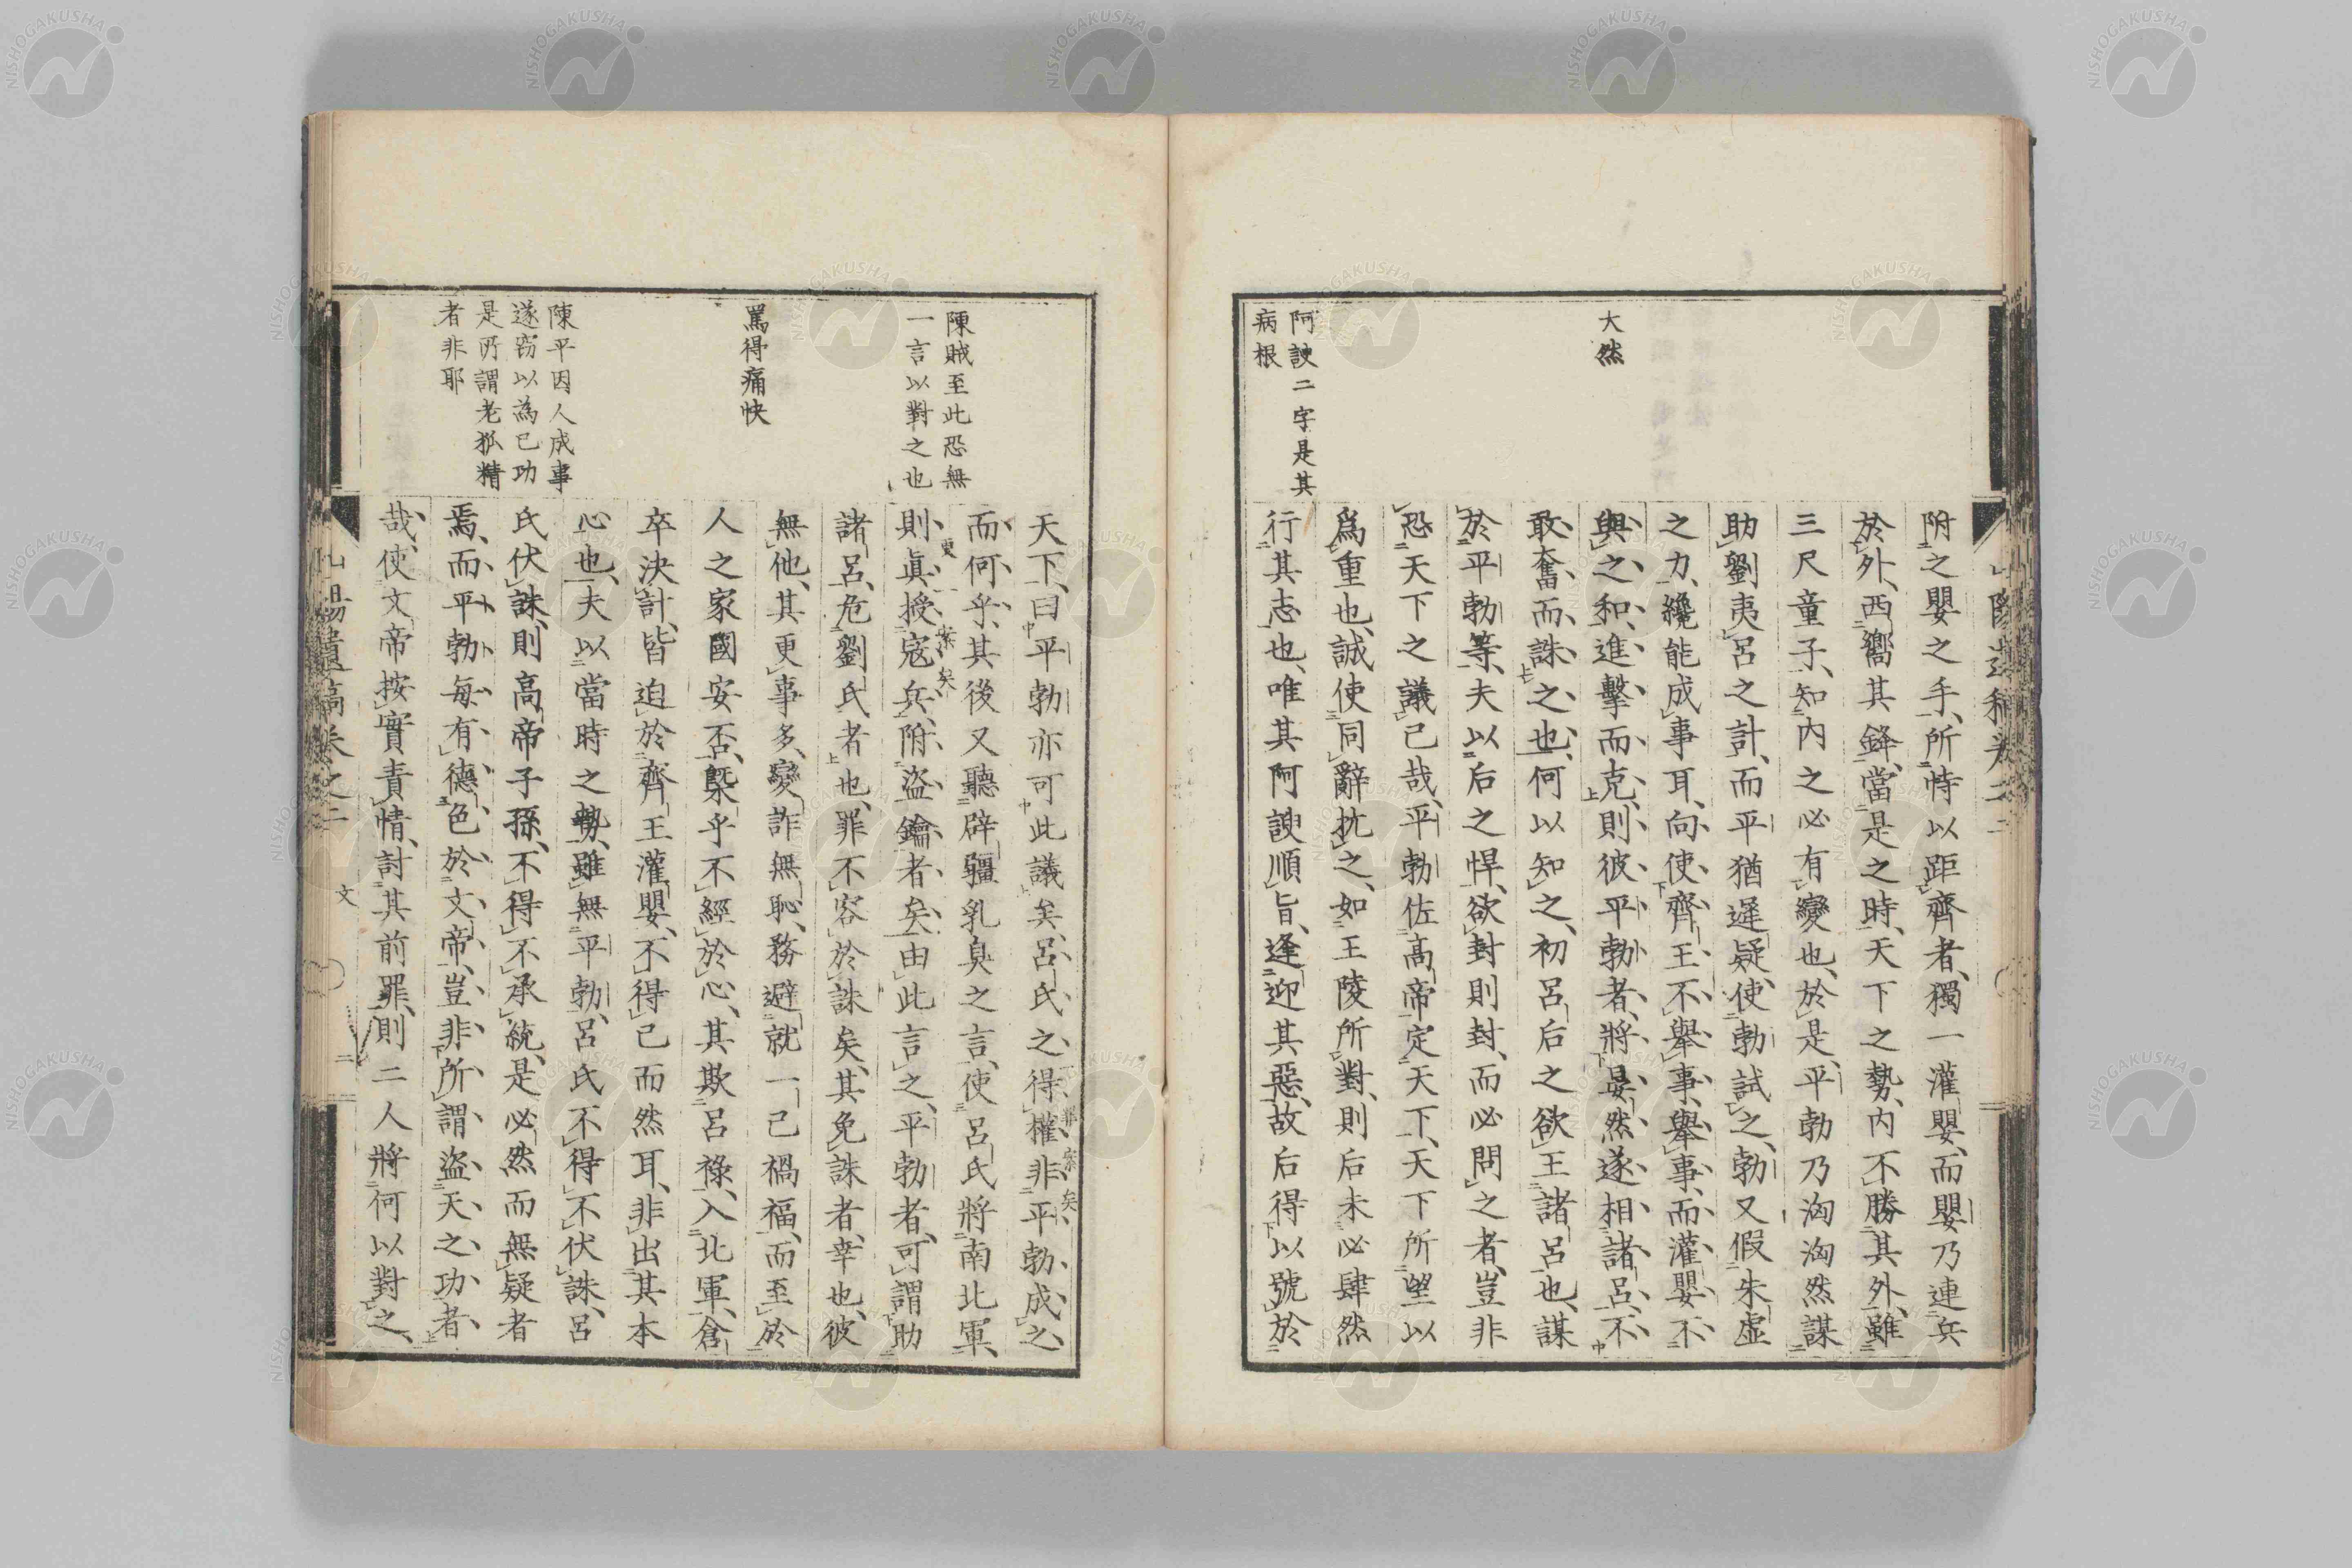 大然
阿諛二字是其
病根
附之嬰之手、所恃以距齊者、獨一灌嬰、而嬰乃連兵
於外、西嚮其鋒、當是之時、天下之勢、内不勝其外、雖
三尺童子、知内之必有變也、於是平勃乃洶洶然謀
助劉夷呂之計、而平猶遲疑、使勃試之、勃又假朱虚
之力、纔能成事耳、向使齊王不舉事、舉事而灌嬰不
與之和、進擊而克、則彼平勃者、將晏然遂相諸呂、不
敢奮而誅之也、何以知之、初呂后之欲王諸呂也、謀
於平勃等、夫以后之悍、欲封則封、而必問之者、豈非
恐天下之議己哉、平勃佐高帝定天下、天下所望以
爲重也、誠使同辭抗之、如王陵所對、則后未必肆然
行其志也、唯其阿諛順旨、逢迎其惡、故后得以號於
陳賊至此恐無
一言以對之也
罵得痛快
陳平因人成事
遂窃以為已功
是所謂老狐精
者非耶
天下、曰平勃亦可此議矣、呂氏之得權、非平勃成之、
而何乎、其後又聽辟疆乳臭之言、使呂氏將南北軍、
則眞授寇兵、附盗鑰者矣、由此言之、平勃者、可謂助
諸呂、危劉氏者也、罪不容於誅矣、其免誅者、幸也、彼
無他、其更事多、變詐無恥、務避就一己禍福、而至於
人之家國安否、槩乎不經於心、其欺呂祿、入北軍、倉
卒決計、皆迫於齊王灌嬰、不得已而然耳、非出其本
心也、夫以當時之勢、雖無平勃、呂氏不得不伏誅、呂
氏伏誅、則高帝子孫、不得不承統、是必然而無疑者
焉、而平勃每有德色於文帝、豈非所謂盗天之功者
哉、使文帝按實責情、討其前罪、則二人將何以對之、
山陽遺稿卷之二
文